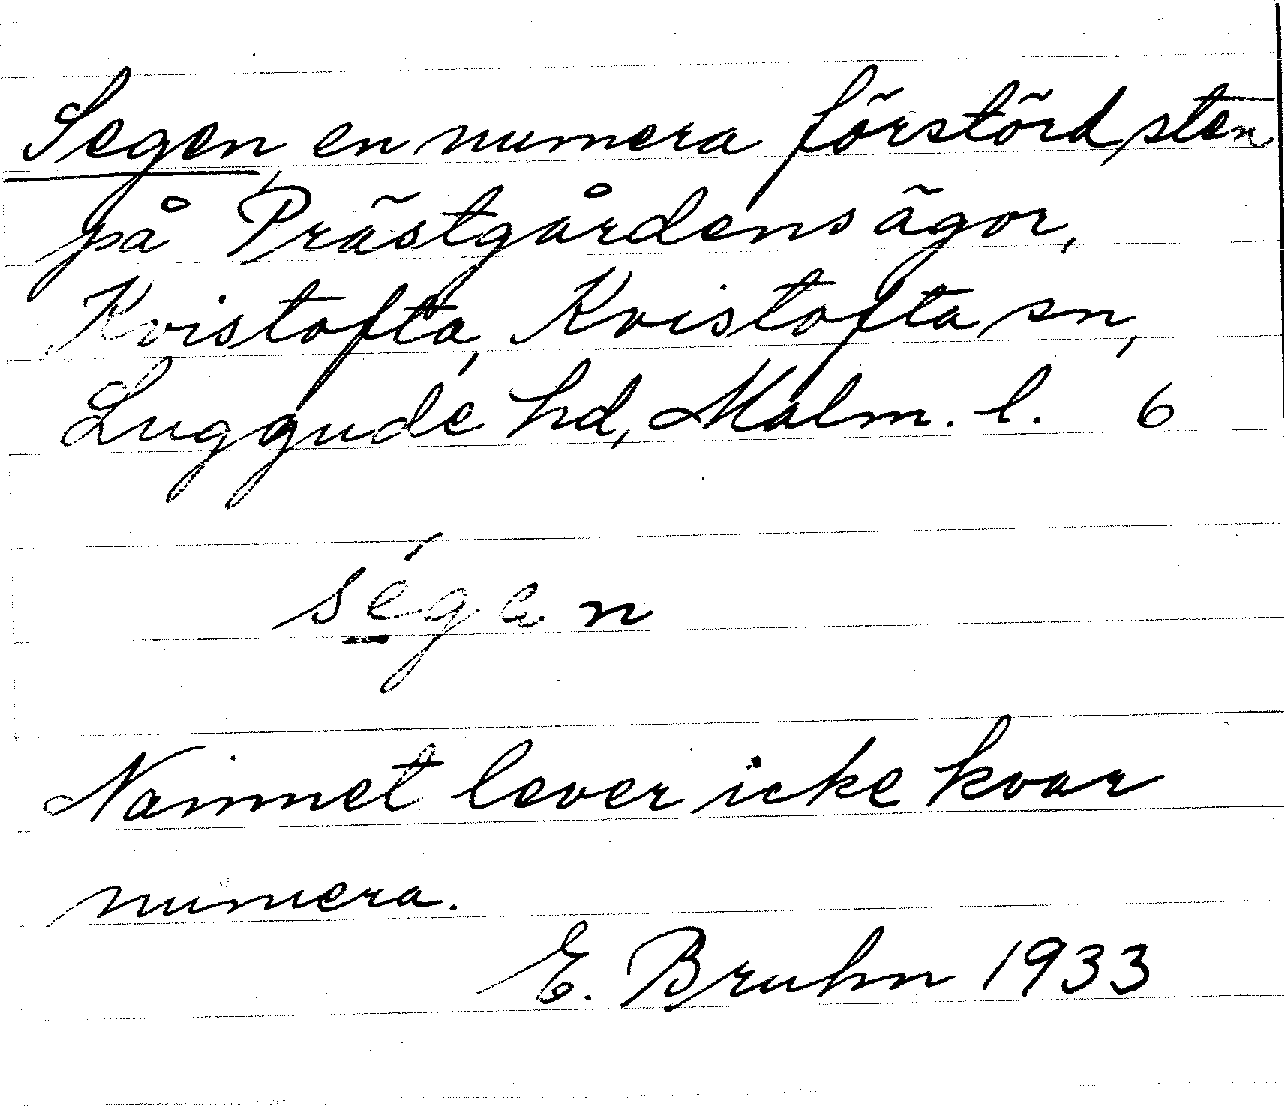 Segen, en numera förstörd sten
på Prästgårdens ägor,
Kvistofta, Kvistofta sn,
Luggude hd, Malm. l. 6
ségan
Namnet lever icke kvar
numera.
E. Bruhn 1933